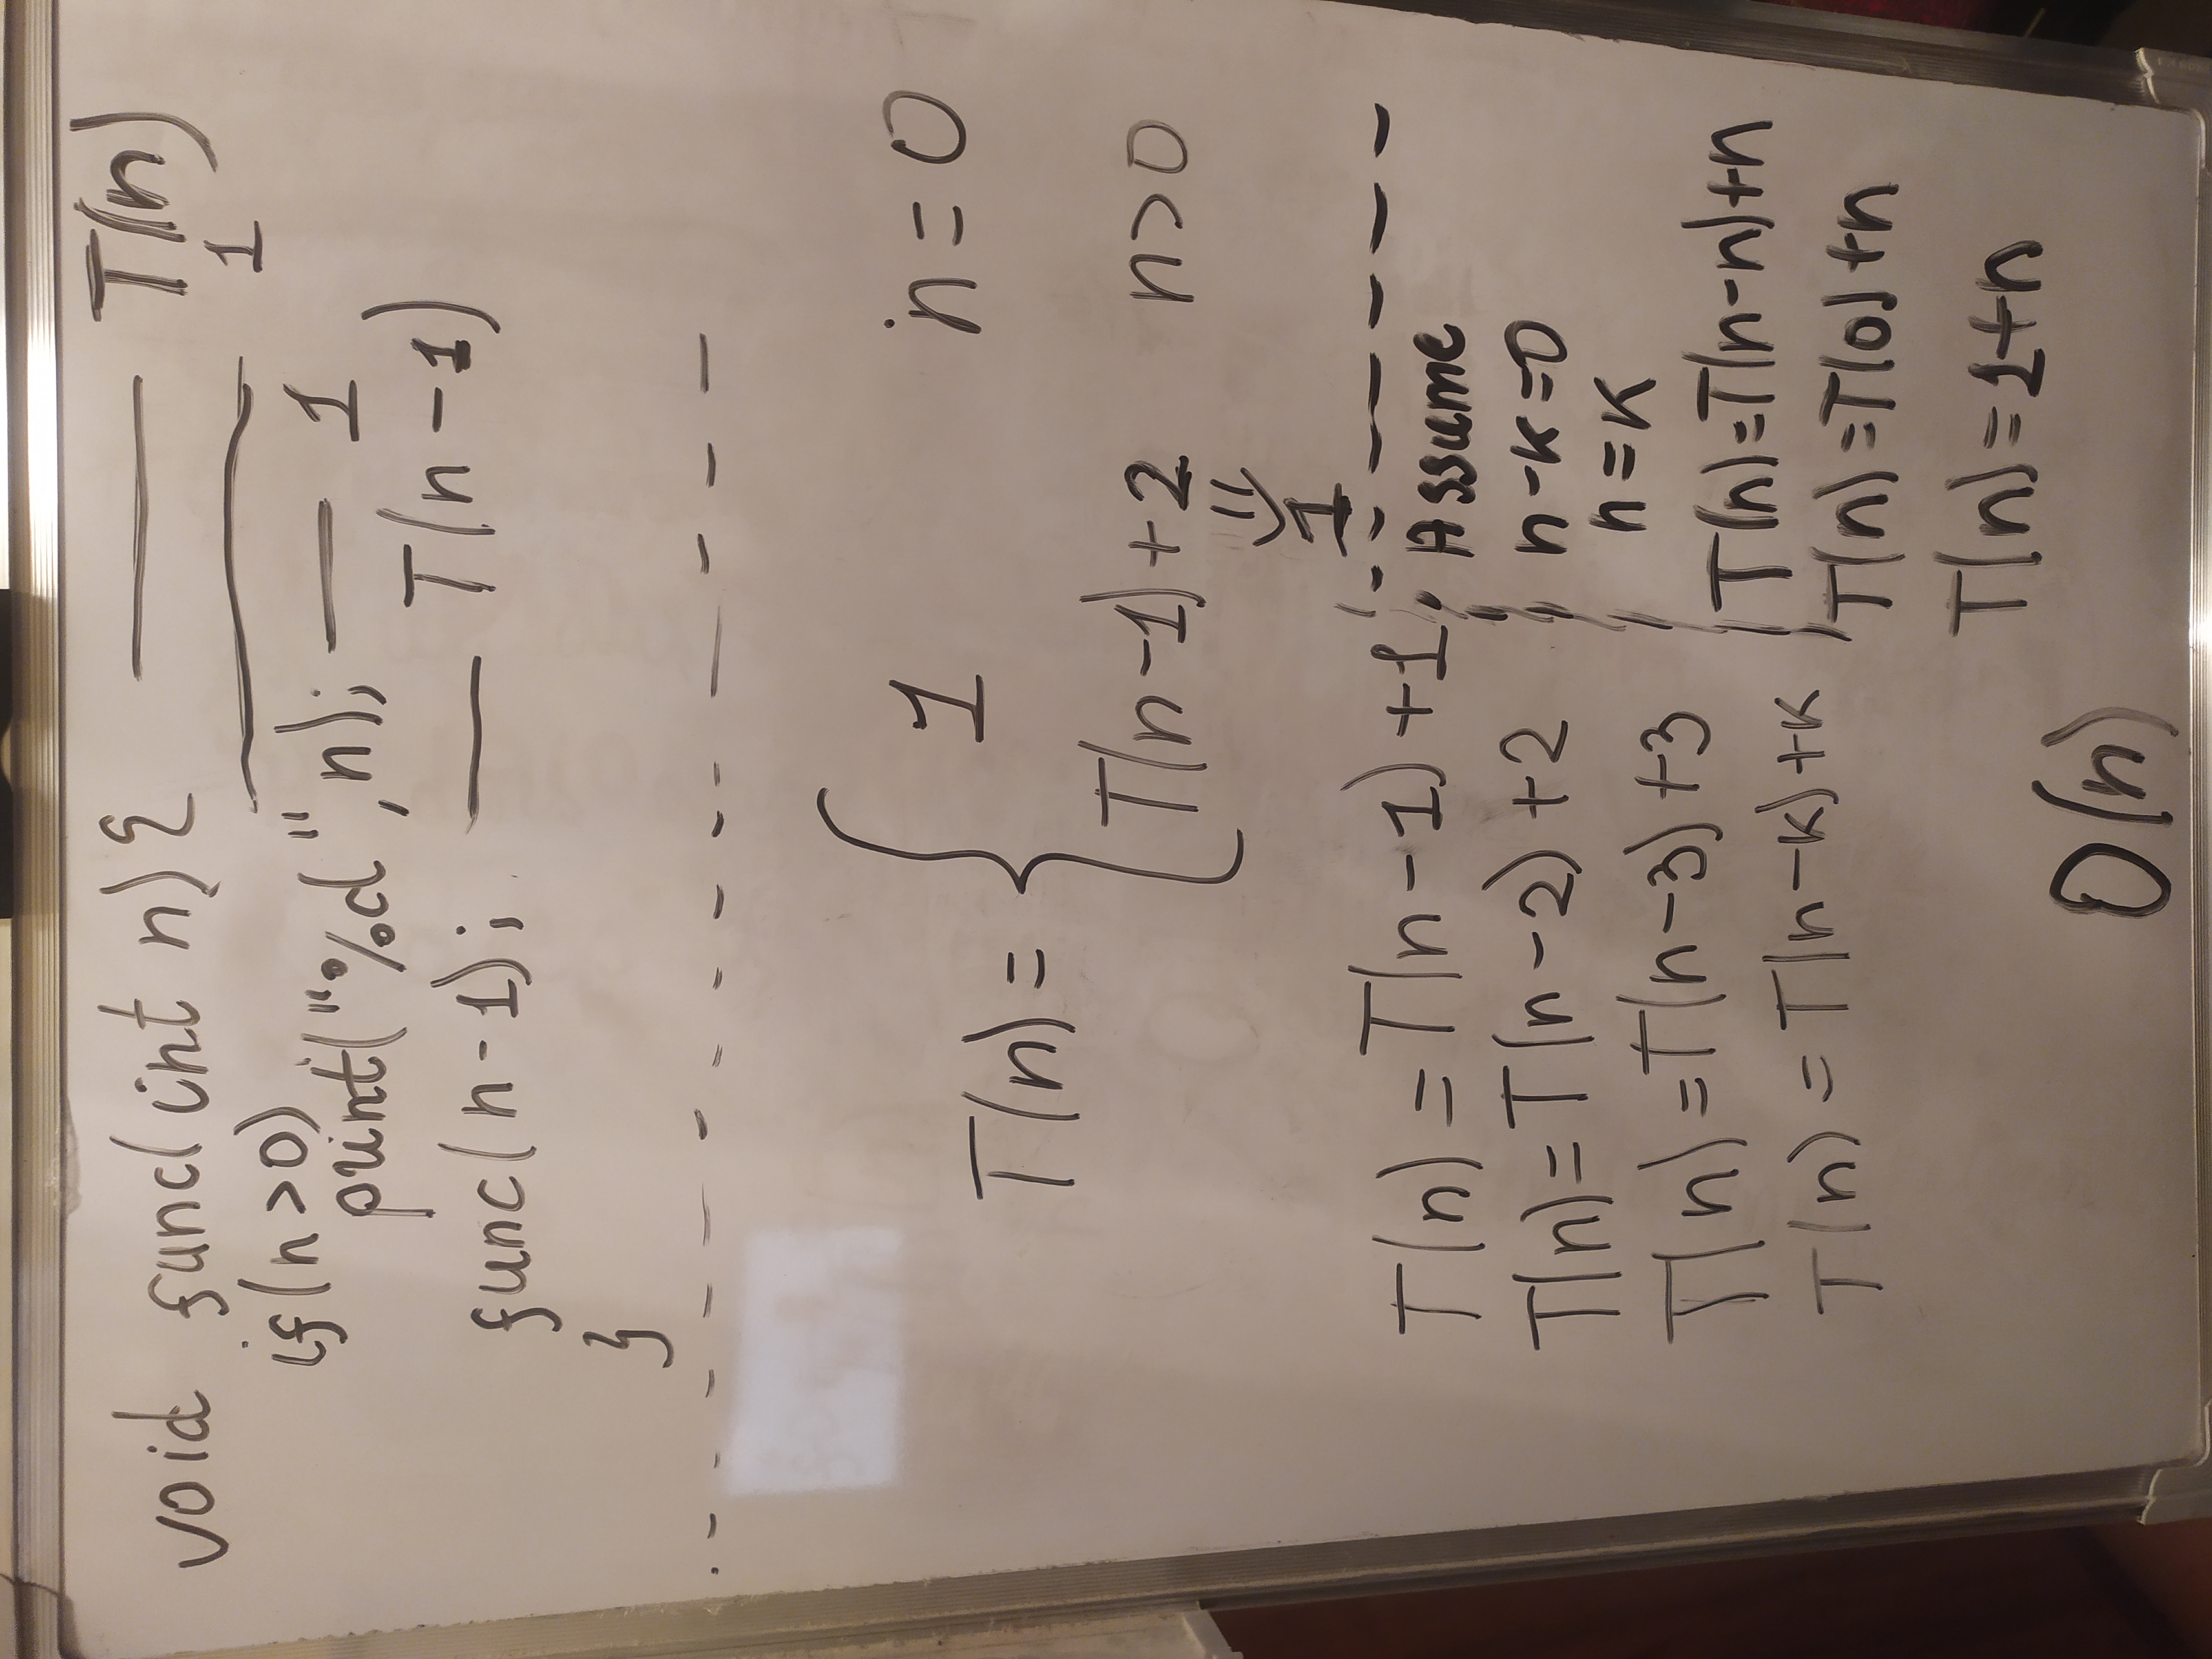 void func(int n){ —— T(n)
if(n>0) —— 1
print("%d", n); —— 1
func(n-1); —— T(n-1)
}
T(n) = {
1 n=0
T(n-1)+2 n>0
⇓
1
T(n) = T(n-1) +1
T(n) = T(n-2) +2
T(n) = T(n-3) +3
T(n) = T(n-k) +k
Assume
n-k=0
n=k
T(n)=T(n-n)+n
T(n)=T(0)+n
T(n)=1+n
O(n)